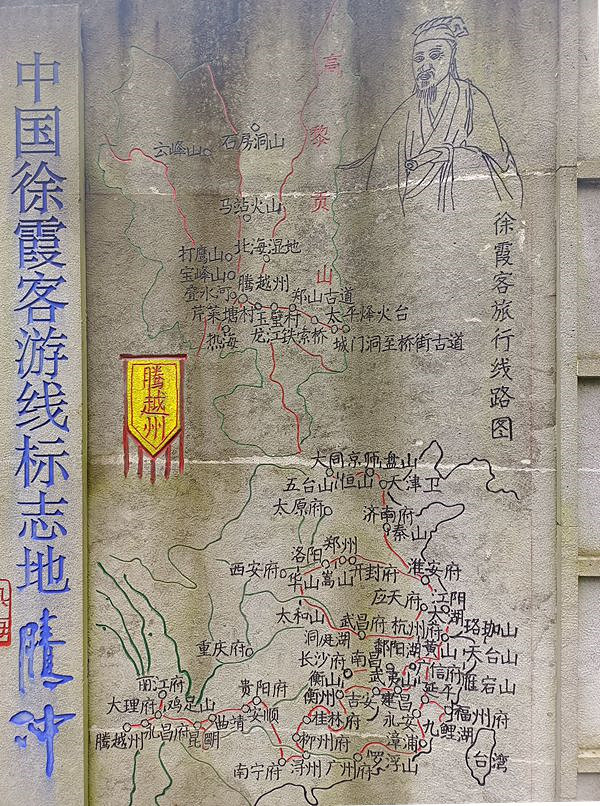 中国徐霞客游线标志地
腾冲
徐霞客旅行线路图
高黎贡山
石房洞山
云峰山
马站火山
北海湿地
打鹰山
宝峰山
腾越州
叠水河
郑山古道
芹菜塘村
玉壁村
太平烽火台
热海
龙江铁索桥
城门洞至桥街古道
腾越州
大同
京师
盘山
五台山
恒山
天津卫
太原府
济南府
泰山
洛阳
郑州
西安府
华山
嵩山
开封府
淮安府
应天府
江阴
太湖
太和山
武昌府
杭州府
珞珈山
洞庭湖
鄱阳湖
黄山
天台山
重庆府
长沙府
南昌
信府
雁宕山
衡山
武夷山
延平
丽江府
贵阳府
衡州
吉安
建昌
福州府
大理府
鸡足山
安顺
桂林府
永安
九鲤湖
腾越州
永昌府
昆明
曲靖
柳州府
漳浦
台湾
南宁府
浔州
广州府
罗浮山